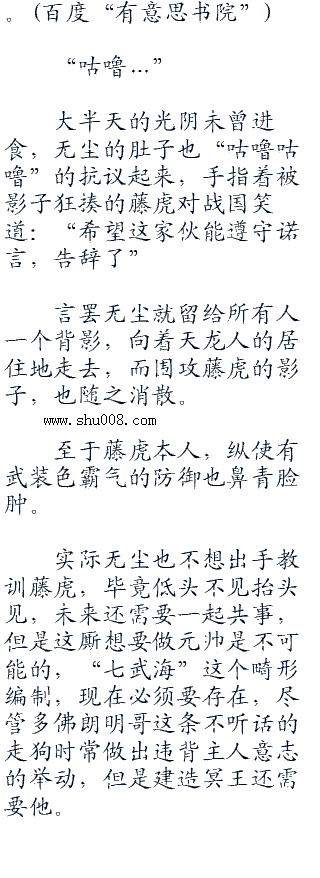 。(百度“有意思书院”)
“咕噜…”
大半天的光阴未曾进
食，无尘的肚子也“咕噜咕
噜”的抗议起来，手指着被
影子狂揍的藤虎对战国笑
道：“希望这家伙能遵守诺
言，告辞了”
言罢无尘就留给所有人
一个背影，向着天龙人的居
住地走去，而围攻藤虎的影
子，也随之消散。
www.shu008.com
至于藤虎本人，纵使有
武装色霸气的防御也鼻青脸
肿。
实际无尘也不想出手教
训藤虎，毕竟低头不见抬头
见，未来还需要一起共事，
但是这厮想要做元帅是不可
能的，“七武海”这个畸形
编制，现在必须要存在，尽
管多佛朗明哥这条不听话的
走狗时常做出违背主人意志
的举动，但是建造冥王还需
要他。